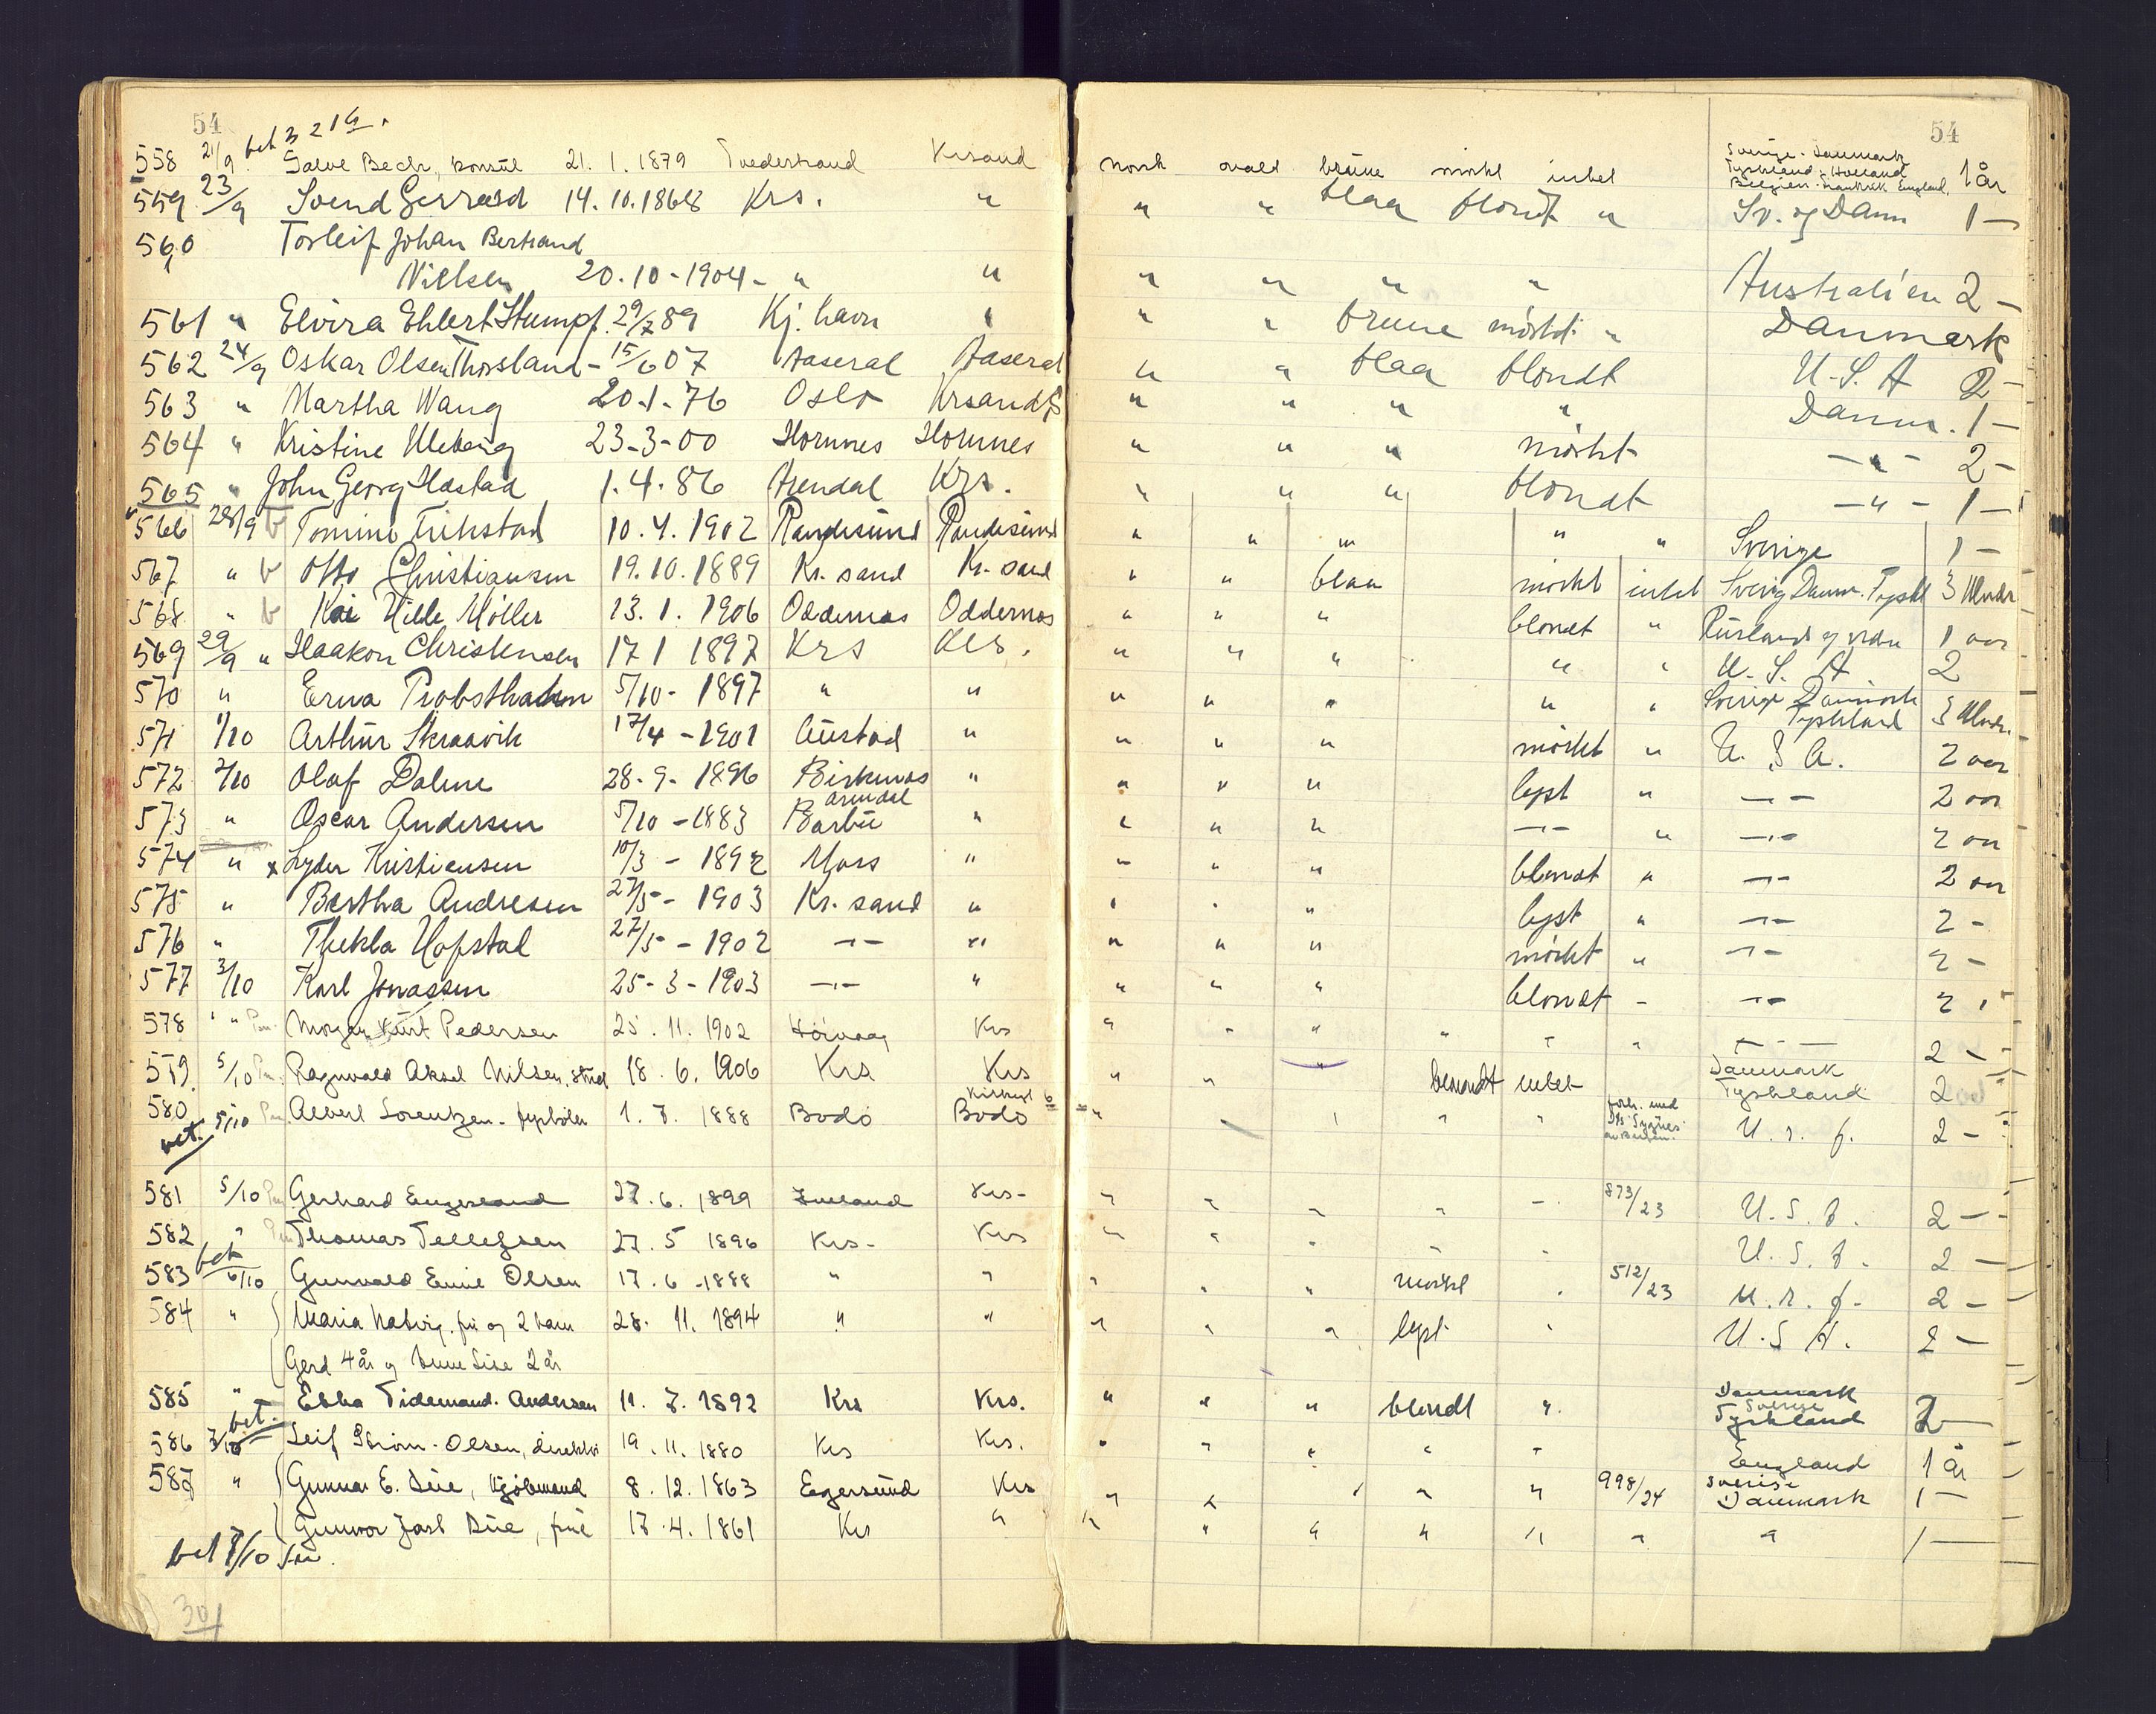 54
bet 3 21/9.
558 21/9. Salve Bech, konsul 21. 1. 1879 Tvedestrand Krsand
559 23/9 Svend Gerrard 14. 10. 1868 Krs. "
560 Torleif Johan Bertrand
Nielsen 20. 10 - 1904 - " "
561 " Elvira Ehlert Stumpf. 29/7 89 Kj. havn "
562 24/9 Oskar Olsen Thorsland - 15/6 07 Aaseral Aaseral
563 " Martha Wang 20-1-76 Oslo Krsand S
564 " Kristine Uleberg 23-3-00 Hornnes Hornnes
565 " John Georg Hæstad 1. 4. 86 Arendal Krs.
566 28/9 b Tomine 10. 4. 1902 Randesund Randesund
567 " b Otto Christiansen 19. 10. 1889 Kr. sand Kr. sand
568 " b Kai Hilde Möller 13. 1. 1906 Oddernes Oddernes
569 29/9 " Haakon Christensen 17 1 1897 Krs Krs.
570 " Erna Probsthahn 5/10 - 1897 " "
571 1/10 Arthur Skraavik 17/4 - 1901 "
572 2/10 Olaf Dalene 28 - 9 - 1896 Birkenes "
573 " Oscar Andersen 5/10 - 1883 Arendal Barbu "
574 " x Lyder Kristiansen 10/3 - 1892 Moss "
575 " Bertha Andresen 27/5 - 1903 Kr. sand "
576 " Thekla Hofstad 27/5 - 1902 -"- "
577 3/10 Karl Jonassen 25 - 3 - 1903 -"- "
578 " " Kurt Pedersen 25. 11. 1902 Höivaag Krs
579. 5/10 Ragnvald Aksel Nilsen, stud 18. 6. 1906 Krs Krs
580 5/10 Albert Lorentzen - fyrböter 1. 7. 1888 Bodö Bodö
bet.
581 5/10 Gerhard 27. 6. 1899 Krs -
582 " Thomas Tellefsen 27. 5 1896 Krs - Krs
bet
583 6/10 Gunvald Emil Olsen 17. 6 - 1888 " "
584 " Maria Hatvig. fru og 2 barn 28. 11. 1894 " "
Gerd 4 år og Anne Lise 2 år
585 " Ebba Tidemand. Andersen 11. 7. 1892 Krs Krs.
bet.
586 7/10 Leif Olsen, direktör 19. 11. 1880 Krs Krs.
587 " Gunnar E. Due, Kjöbmand 8. 12. 1863 Egersund Krs
Gunvor Jarl Due, frue 17. 4. 1861 Krs "
bet 7/10
301
54
norsk ovalt brune mörkt intet Sverige - Danmark Tyskland - Holland Belgien - Frankrik England, 1 år
" " blaa blondt " Sv. og Danm 1 -
" " " " Australien 2 -
" " brune mörkt " Danmark
" " blaa blondt U. S. A 2 -
" " " " Danm. 1 -
" " " mörkt -"- 2 -
" " " blondt -"- 1 -
" " " " " Sverige 1 -
" " blaa mörkt intet Sverig Danm. Tyskl 3
" " " blondt " 1 aar
" " " " " U. S. A 2
" " " " " Sverige Danmark Tyskland 3
" " " mörkt " U. S A. 2 aar
" " " lyst " -"- 2 aar
" " " -"- " -"- 2 aar
" " " blondt " -"- 2 aar
" " " lyst " -"- 2 -
" " " mörkt " -"- 2 -
" " " blondt - -"- 2 "
" " " " " " -"- 2 -
" " " blondt intet Danmark Tyskland 2
" " " " " U. S. A. 2 -
" " " " - 873/23 U. S. A. 2 -
" " " " " U. S. A. 2 -
" " " mörkt " 512/23 U. S. A. 2 -
" " " lyst " U. S A. 2 -
" " " blondt " Danmark Sverige Tyskland 2 -
" " " " " England 1 år
" " " " " 998/24 Sverige Danmark 1 -
" " " " " " " 1 -